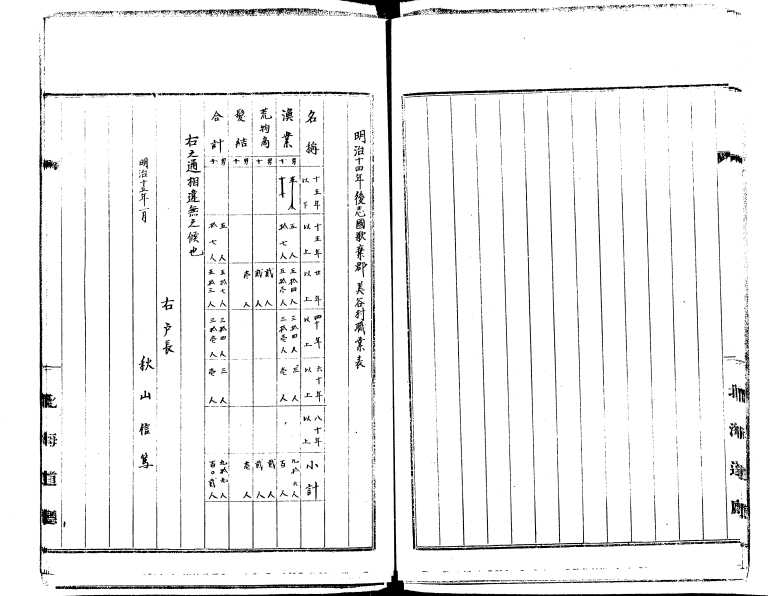 明治十四年後志國歌棄郡美谷村職業表
名稱 十五年以下 十五年以上 廿年以上 四十年以上 六十年以上 八十年以上 小計
漁業 男 五人 五拾四人 三拾四人 三人 九拾六人
女 拾七人 五拾壱人 三拾壱人 壱人 百人
荒物商 男 貳人 貳人
女 貳人 貳人
髪結 男
女 壱人 壱人
合計 男 五人 五拾七人 三拾四人 三人 九拾九人
女 拾七人 五拾三人 三拾壱人 壱人 百〇貳人
右之通相違無之候也
明治十五年一月
右戸長
秋山信篤
北海道廳
北海道廳